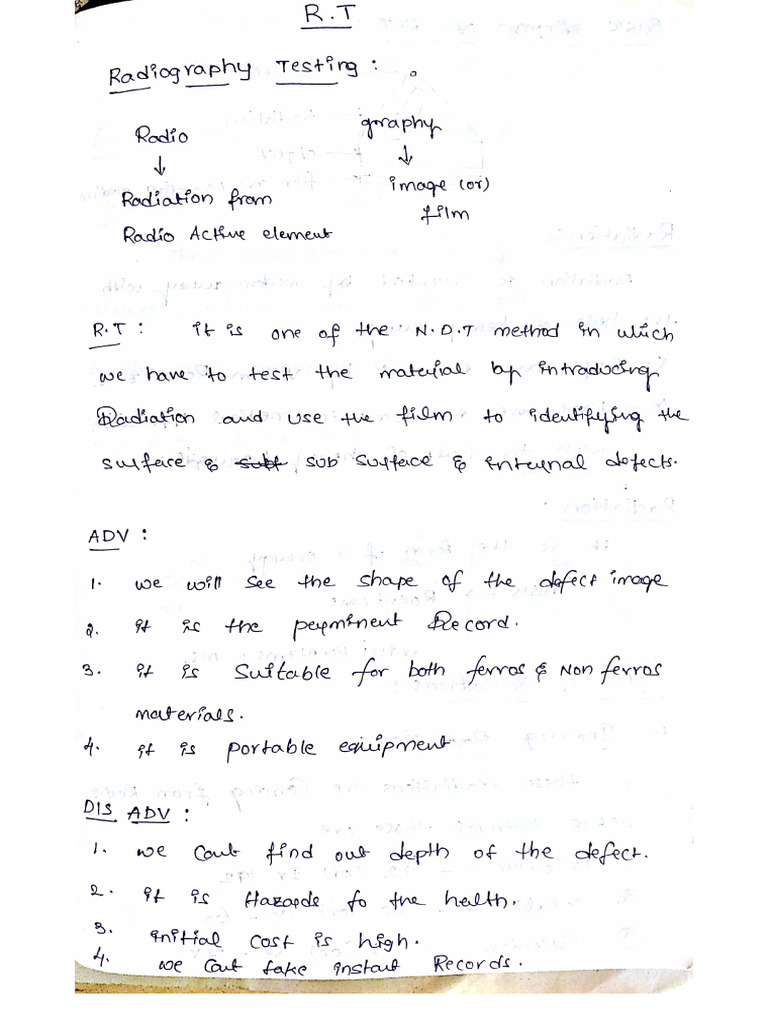 R.T
Radiography Testing :
Radio graphy
↓ ↓
Radiation from image (or)
Radio Active element film
R.T : it is one of the N.D.T method in which
we have to test the material by intraducing
Radiation and use the film to identifying the
surface & subf sub surface & internal defects.
ADV :
1. we will see the shape of the defect image
2. it is the perminent Record.
3. it is Suitable for both ferros & Non ferros
materials.
4. it is portable equipment
DIS ADV :
1. we Cant find out depth of the defect.
2. it is Hazarde to the health.
3. initial cost is high.
4. we Cant take instant Records.